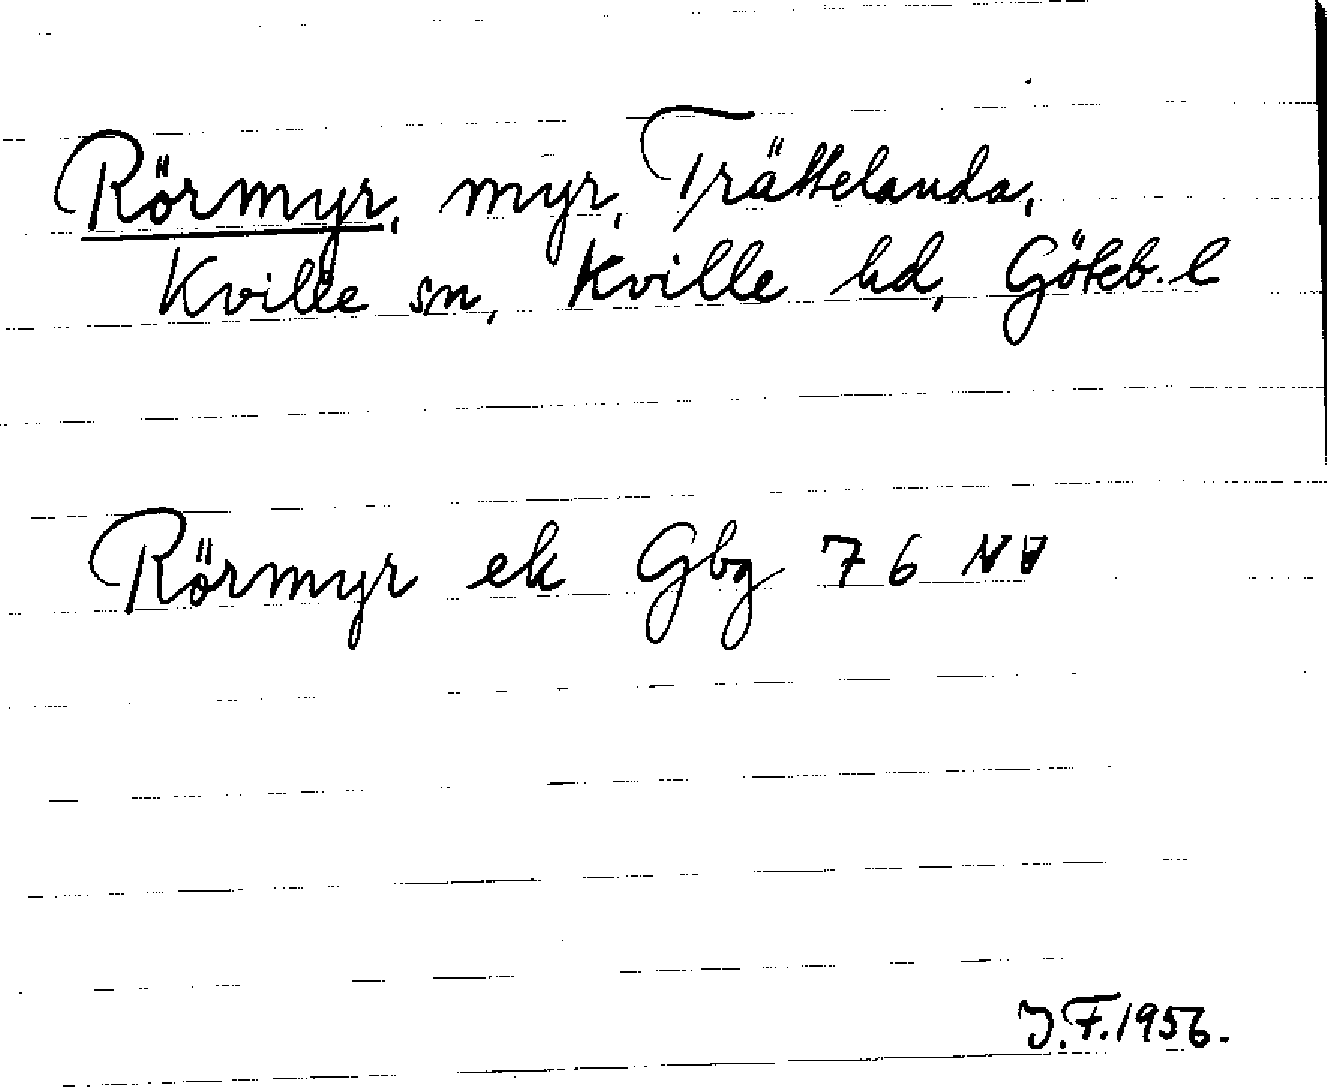 Rörmyr, myr, Trättelanda,
Kville sn, Kville hd, Göteb. l
Rörmyr ek Gbg 76 NV
J.F. 1956.